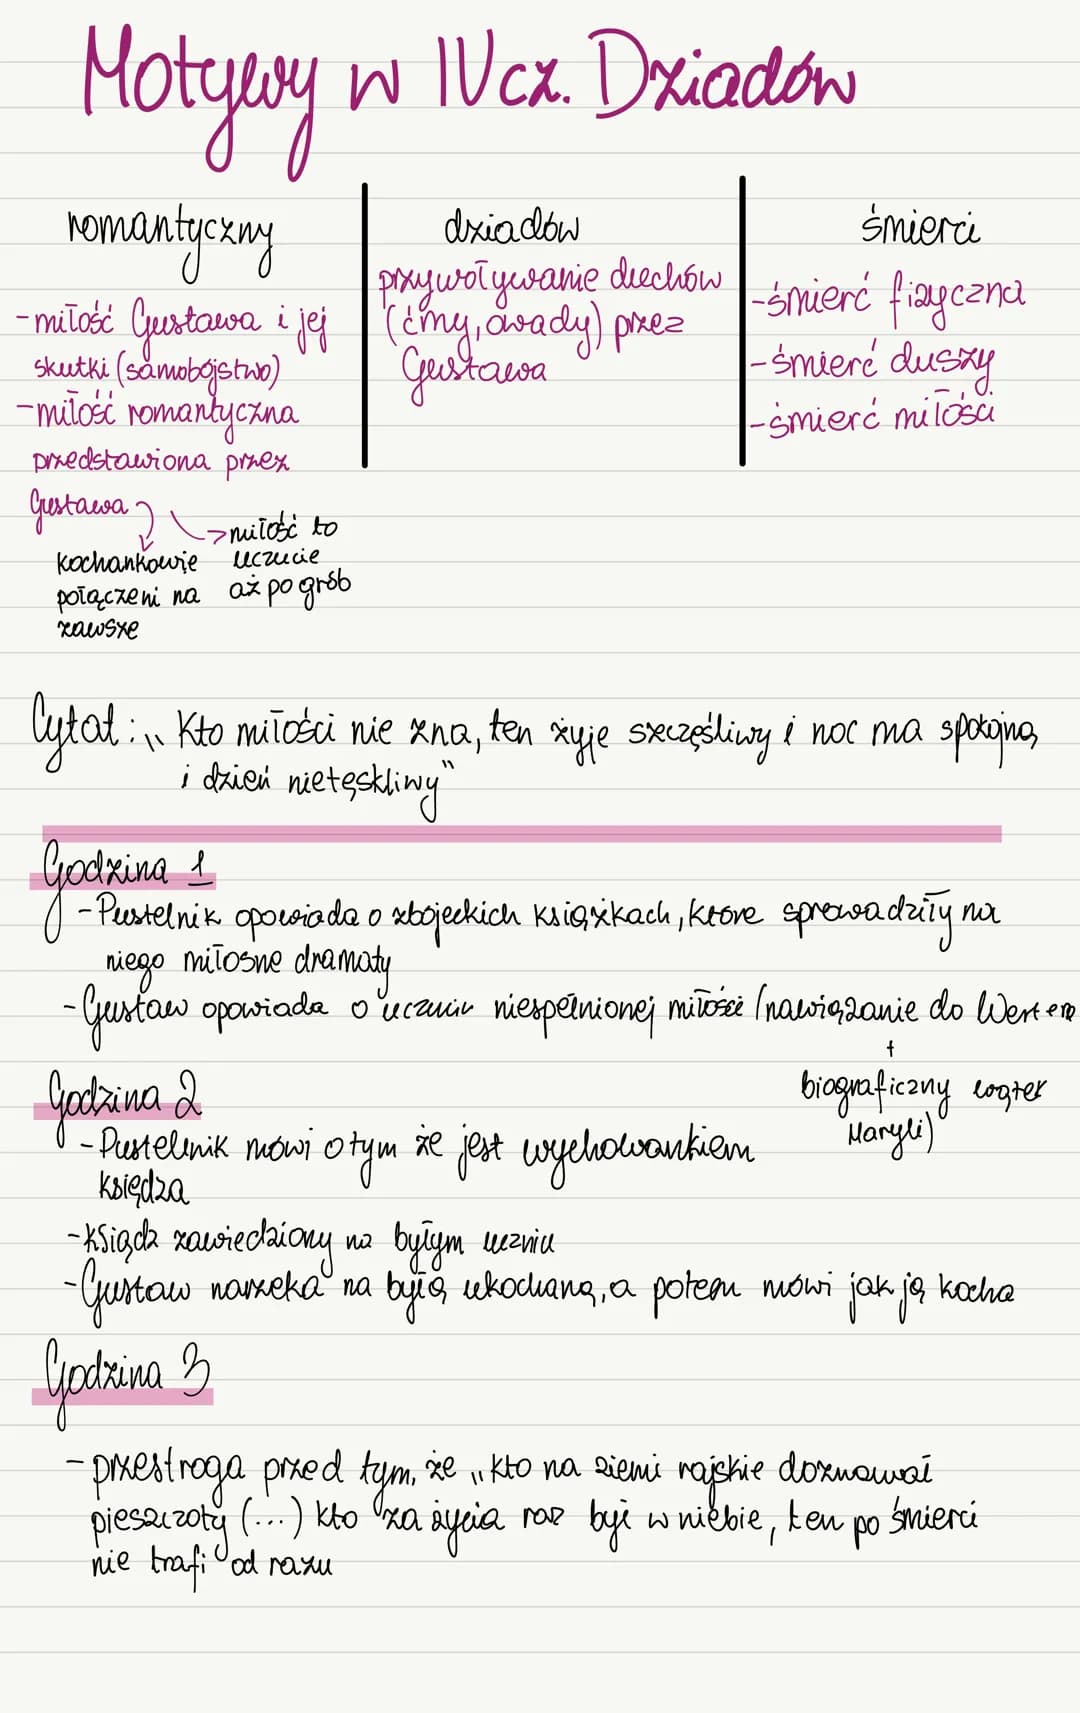 Motywy w IV cz. Dziadów
romantyczny
- miłość Gustawa i jej
skutki (samobójstwo)
- miłość romantyczna
przedstawiona przez
Gustawa
kochankowie
połączeni na
zawsze
-> miłość to
uczucie
aż po grób
dziadów
przywoływanie duchów
(ćmy, owady) przez
Gustawa
śmierci
- śmierć fizyczna
- śmierć duszy
- śmierć miłości
Cytat: „Kto miłości nie zna, ten żyje szczęśliwy i noc ma spokojną
i dzień nietęskliwy"
Godzina 1
- Pustelnik opowiada o zbójeckich książkach, które sprowadziły na
niego miłosne dramaty
- Gustaw opowiada o uczuciu niespełnionej miłości (nawiązanie do Wertera
+
biograficzny wątek
Maryli)
Godzina 2
- Pustelnik mówi o tym że jest wychowankiem
księdza
- Ksiądz zawiedziony na byłym uczniu
- Gustaw narzeka na byłą ukochaną, a potem mówi jak ją kocha
Godzina 3
- przestroga przed tym, że „kto na ziemi rajskie doznawał
pieszczoty (...) kto za życia raz był w niebie, ten po śmierci
nie trafi od razu